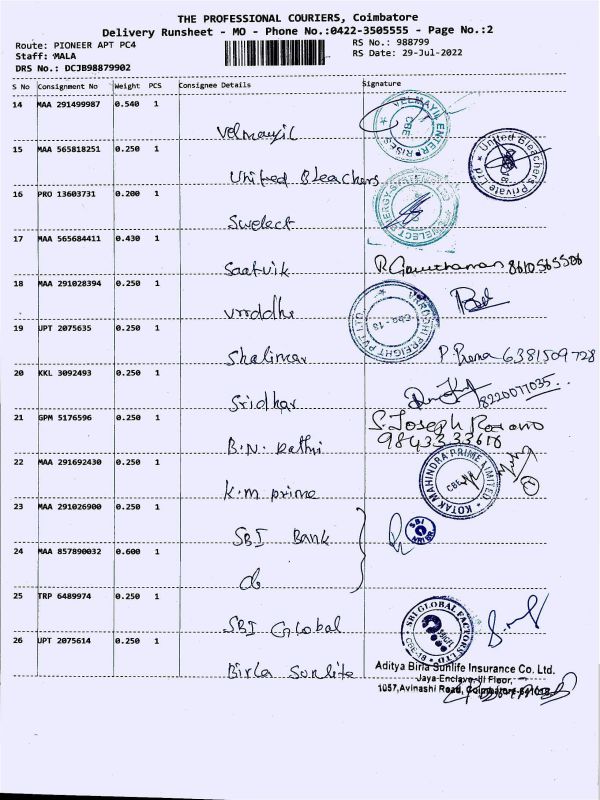 THE PROFESSIONAL COURIERS, Coimbatore
Delivery Runsheet - MO - Phone No.:0422-3505555 - Page No.:2
Route: PIONEER APT PC4
RS No.: 988799
Staff: MALA
RS Date: 29-Jul-2022
DRS No.: DCJB98879902
S No Consignment No Weight PCS Consignee Details Signature
14 MAA 291499987 0.540 1
Velmayil
VELMAYIL ENTERPRISES CBE
15 MAA 565818251 0.250 1
United Bleachers
United Bleachers Private Ltd
16 PRO 13603731 0.200 1
Swelect
17 MAA 565684411 0.430 1
Saatvik
R. Gowthaman 8610565506
18 MAA 291028394 0.250 1
vrddhi
VRDDHI FREIGHT PVT LTD Cbe - 18
19 UPT 2075635 0.250 1
Shalimar
P. Prema 6381509728
20 KKL 3092493 0.250 1
Sridhar
8220077035
21 GPM 5176596 0.250 1
B.N. Rathi
S. Joseph
22 MAA 291692430 0.250 1
K.M prime
KOTAK MAHINDRA PRIME LIMITED
23 MAA 291026900 0.250 1
SBI Bank
SBI
24 MAA 857890032 0.600 1
do
25 TRP 6489974 0.250 1
SBI Global
SBI GLOBAL FACTORS LTD CBE-18
26 UPT 2075614 0.250 1
Birla Sunlife
Aditya Birla Sunlife Insurance Co. Ltd.
Jaya Enclave, III Floor,
1057, Avinashi Road, Coimbatore-641018